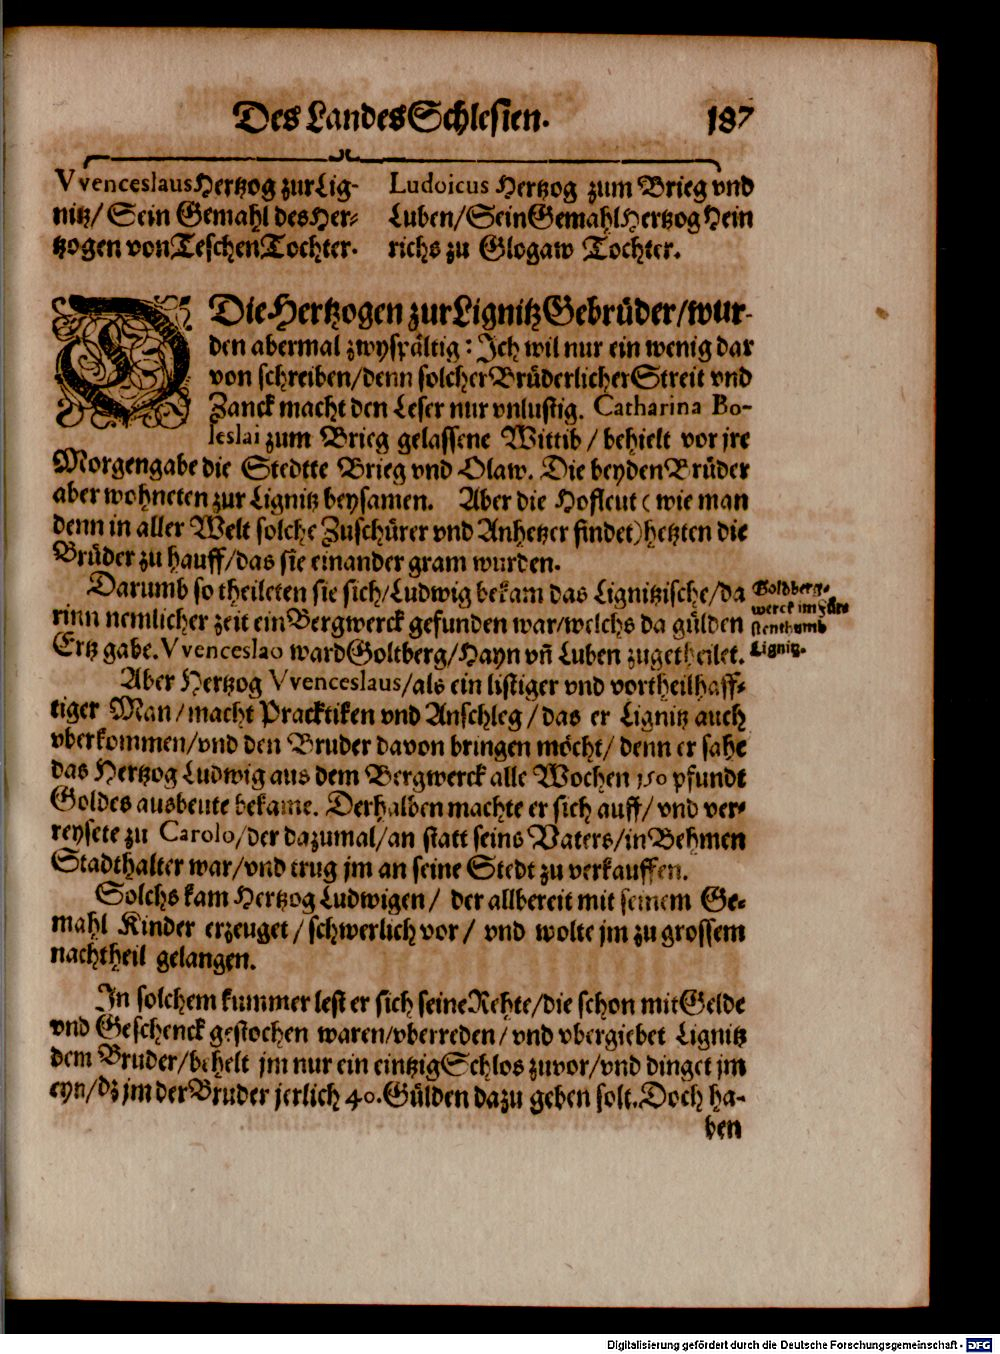 Des Landes Schlesien. 187
Vvenceslaus Hertzog zur Lig-
nitz/ Sein Gemahl des Her-
tzogen von Teschen Tochter.
Ludoicus Hertzog zum Brieg vnd
Luben/ Sein Gemahl Hertzog Hein
richs zu Glogaw Tochter.
Die Hertzogen zur Lignitz Gebrüder/ wur-
den abermal zwyspältig: Ich wil nur ein wenig dar
von schreiben/ denn solcher Brüderlicher Streit vnd
Zanck macht den Leser nur vnlustig. Catharina Bo-
leslai zum Brieg gelassene Wittib/ behielt vor jre
Morgengabe die Stedtte Brieg vnd Olaw. Die beyden Brüder
aber wohneten zur Lignitz beysamen. Aber die Hofleut (wie man
denn in aller Welt solche Zuschürer vnd Anhetzer findet) hetzten die
Brüder zu hauff/ das sie einander gram wurden.
Darumb so theileten sie sich/ Ludwig bekam das Lignitzische/ da
rinn nemlicher zeit ein Bergwerck gefunden war/ welchs da gülden
Ertz gabe. Vvenceslao ward Goltberg/ Hayn vñ Luben zugetheilet.
Goldberg-
werck im Fürs
stenthumb
Lignitz.
Aber Hertzog Vvenceslaus/ als ein listiger vnd vortheilhaff-
tiger Man/ macht Pracktiken vnd Anschleg/ das er Lignitz auch
vberkommen/ vnd den Bruder davon bringen möcht/ denn er sahe
das Hertzog Ludwig aus dem Bergwerck alle Wochen 150 pfundt
Goldes ausbeute bekame. Derhalben machte er sich auff/ vnd ver-
reysete zu Carolo/ der dazumal/ an statt seins Vaters/ in Behmen
Stadthalter war/ vnd trug jm an seine Stedt zu verkauffen.
Solchs kam Hertzog Ludwigen/ der allbereit mit seinem Ge-
mahl Kinder erzeuget/ schwerlich vor/ vnd wolte jm zu grossem
nachtheil gelangen.
In solchem kummer lest er sich seine Rehte/ die schon mit Gelde
vnd Geschenck gestochen waren/ vberreden/ vnd vbergiebet Lignitz
dem Bruder/ behelt jm nur ein eintzig Schlos zuvor/ vnd dinget jm
eyn/ dz jm der Bruder jerlich 40. Gülden dazu geben solt. Doch ha-
ben
Digitalisierung gefördert durch die Deutsche Forschungsgemeinschaft - DFG